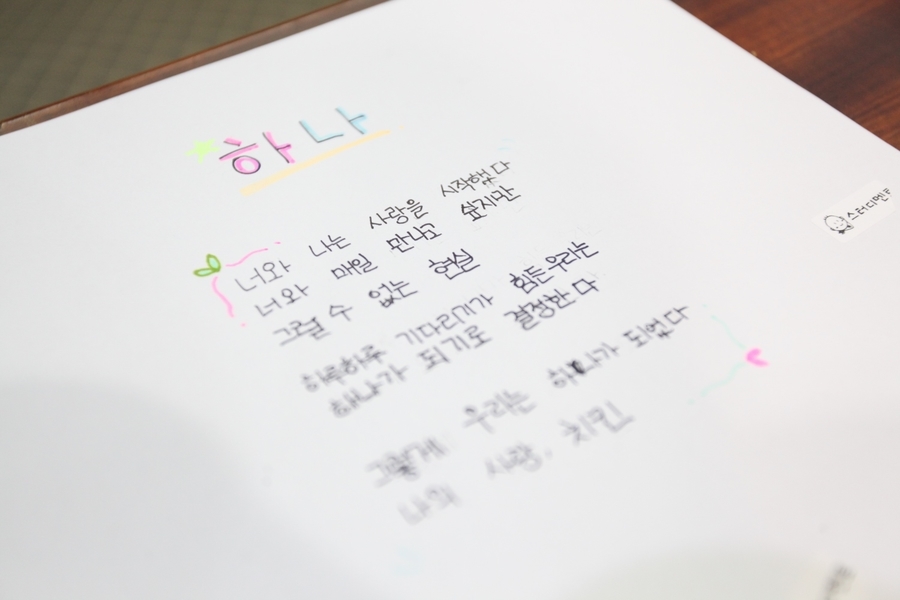 하나
너와 나는 사랑을 시작했다
너와 매일 만나고 싶지만
그럴 수 없는 현실
하루하루 기다리기가 힘든 우리는
하나가 되기로 결정한다
그렇게 우리는 하나가 되었다
나의 사랑, 치킨
스터디멘토